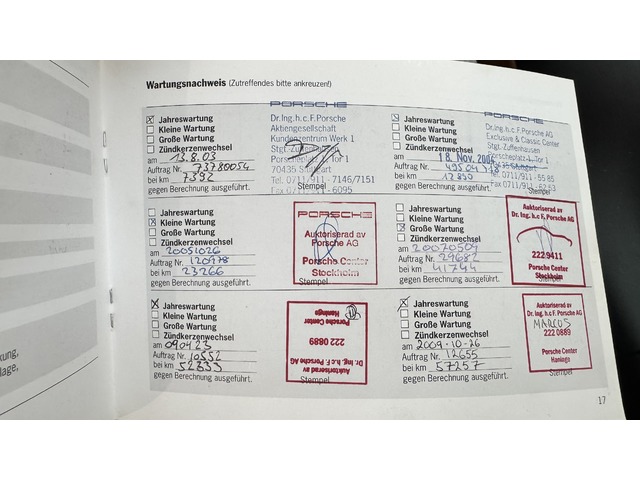 Wartungsnachweis (Zutreffendes bitte ankreuzen!)
Jahreswartung
Kleine Wartung
Große Wartung
Zündkerzenwechsel
am 13.8.03
Auftrag Nr. 73780054
bei km 7392
gegen Berechnung ausgeführt.
PORSCHE
Dr.Ing.h.c.F.Porsche
Aktiengesellschaft
Kundenzentrum Werk 1
Stgt. Zuffenhausen
Porscheplatz Tor 1
70435 Stuttgart
Tel. 0711/911 - 7146/7151
Fax 0711/911 - 6095
Stempel
Jahreswartung
Kleine Wartung
Große Wartung
Zündkerzenwechsel
am 18. Nov. 2004
Auftrag Nr.
bei km 17830
gegen Berechnung ausgeführt.
PORSCHE
Dr.Ing. h.c. F. Porsche AG
Exclusive & Classic Center
Stgt. Zuffenhausen
Porscheplatz 1, Tor 1
Stempel
Jahreswartung
Kleine Wartung
Große Wartung
Zündkerzenwechsel
am 20051026
Auftrag Nr. 120978
bei km 23266
gegen Berechnung ausgeführt.
PORSCHE
Auktoriserad av
Porsche AG
Porsche Center
Stockholm
Stempel
Jahreswartung
Kleine Wartung
Große Wartung
Zündkerzenwechsel
am 20070509
Auftrag Nr. 29682
bei km 41744
gegen Berechnung ausgeführt.
Auktoriserad av
Dr. Ing. h c F. Porsche AG
222 9411
Porsche Center
Stockholm
Stempel
Jahreswartung
Kleine Wartung
Große Wartung
Zündkerzenwechsel
am 090423
Auftrag Nr. 10552
bei km 52833
gegen Berechnung ausgeführt.
Auktoriserad av
Dr. Ing. h.c F. Porsche AG
222 0889
Porsche Center
Haninge
Stempel
Jahreswartung
Kleine Wartung
Große Wartung
Zündkerzenwechsel
am 2009-10-26
Auftrag Nr. 12655
bei km 57257
gegen Berechnung ausgeführt.
Auktoriserad av
Dr. Ing. h.c F. Porsche AG
MARCUS
222 0889
Porsche Center
Haninge
Stempel
17